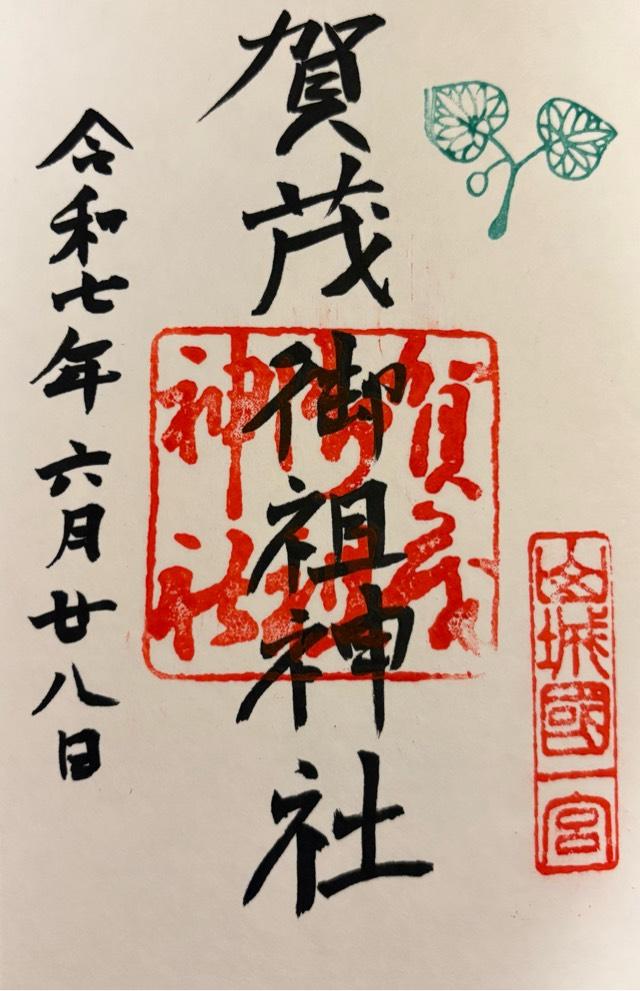 山城國一宮
賀茂御祖神社
賀茂
御祖
神社
令和七年六月廿八日